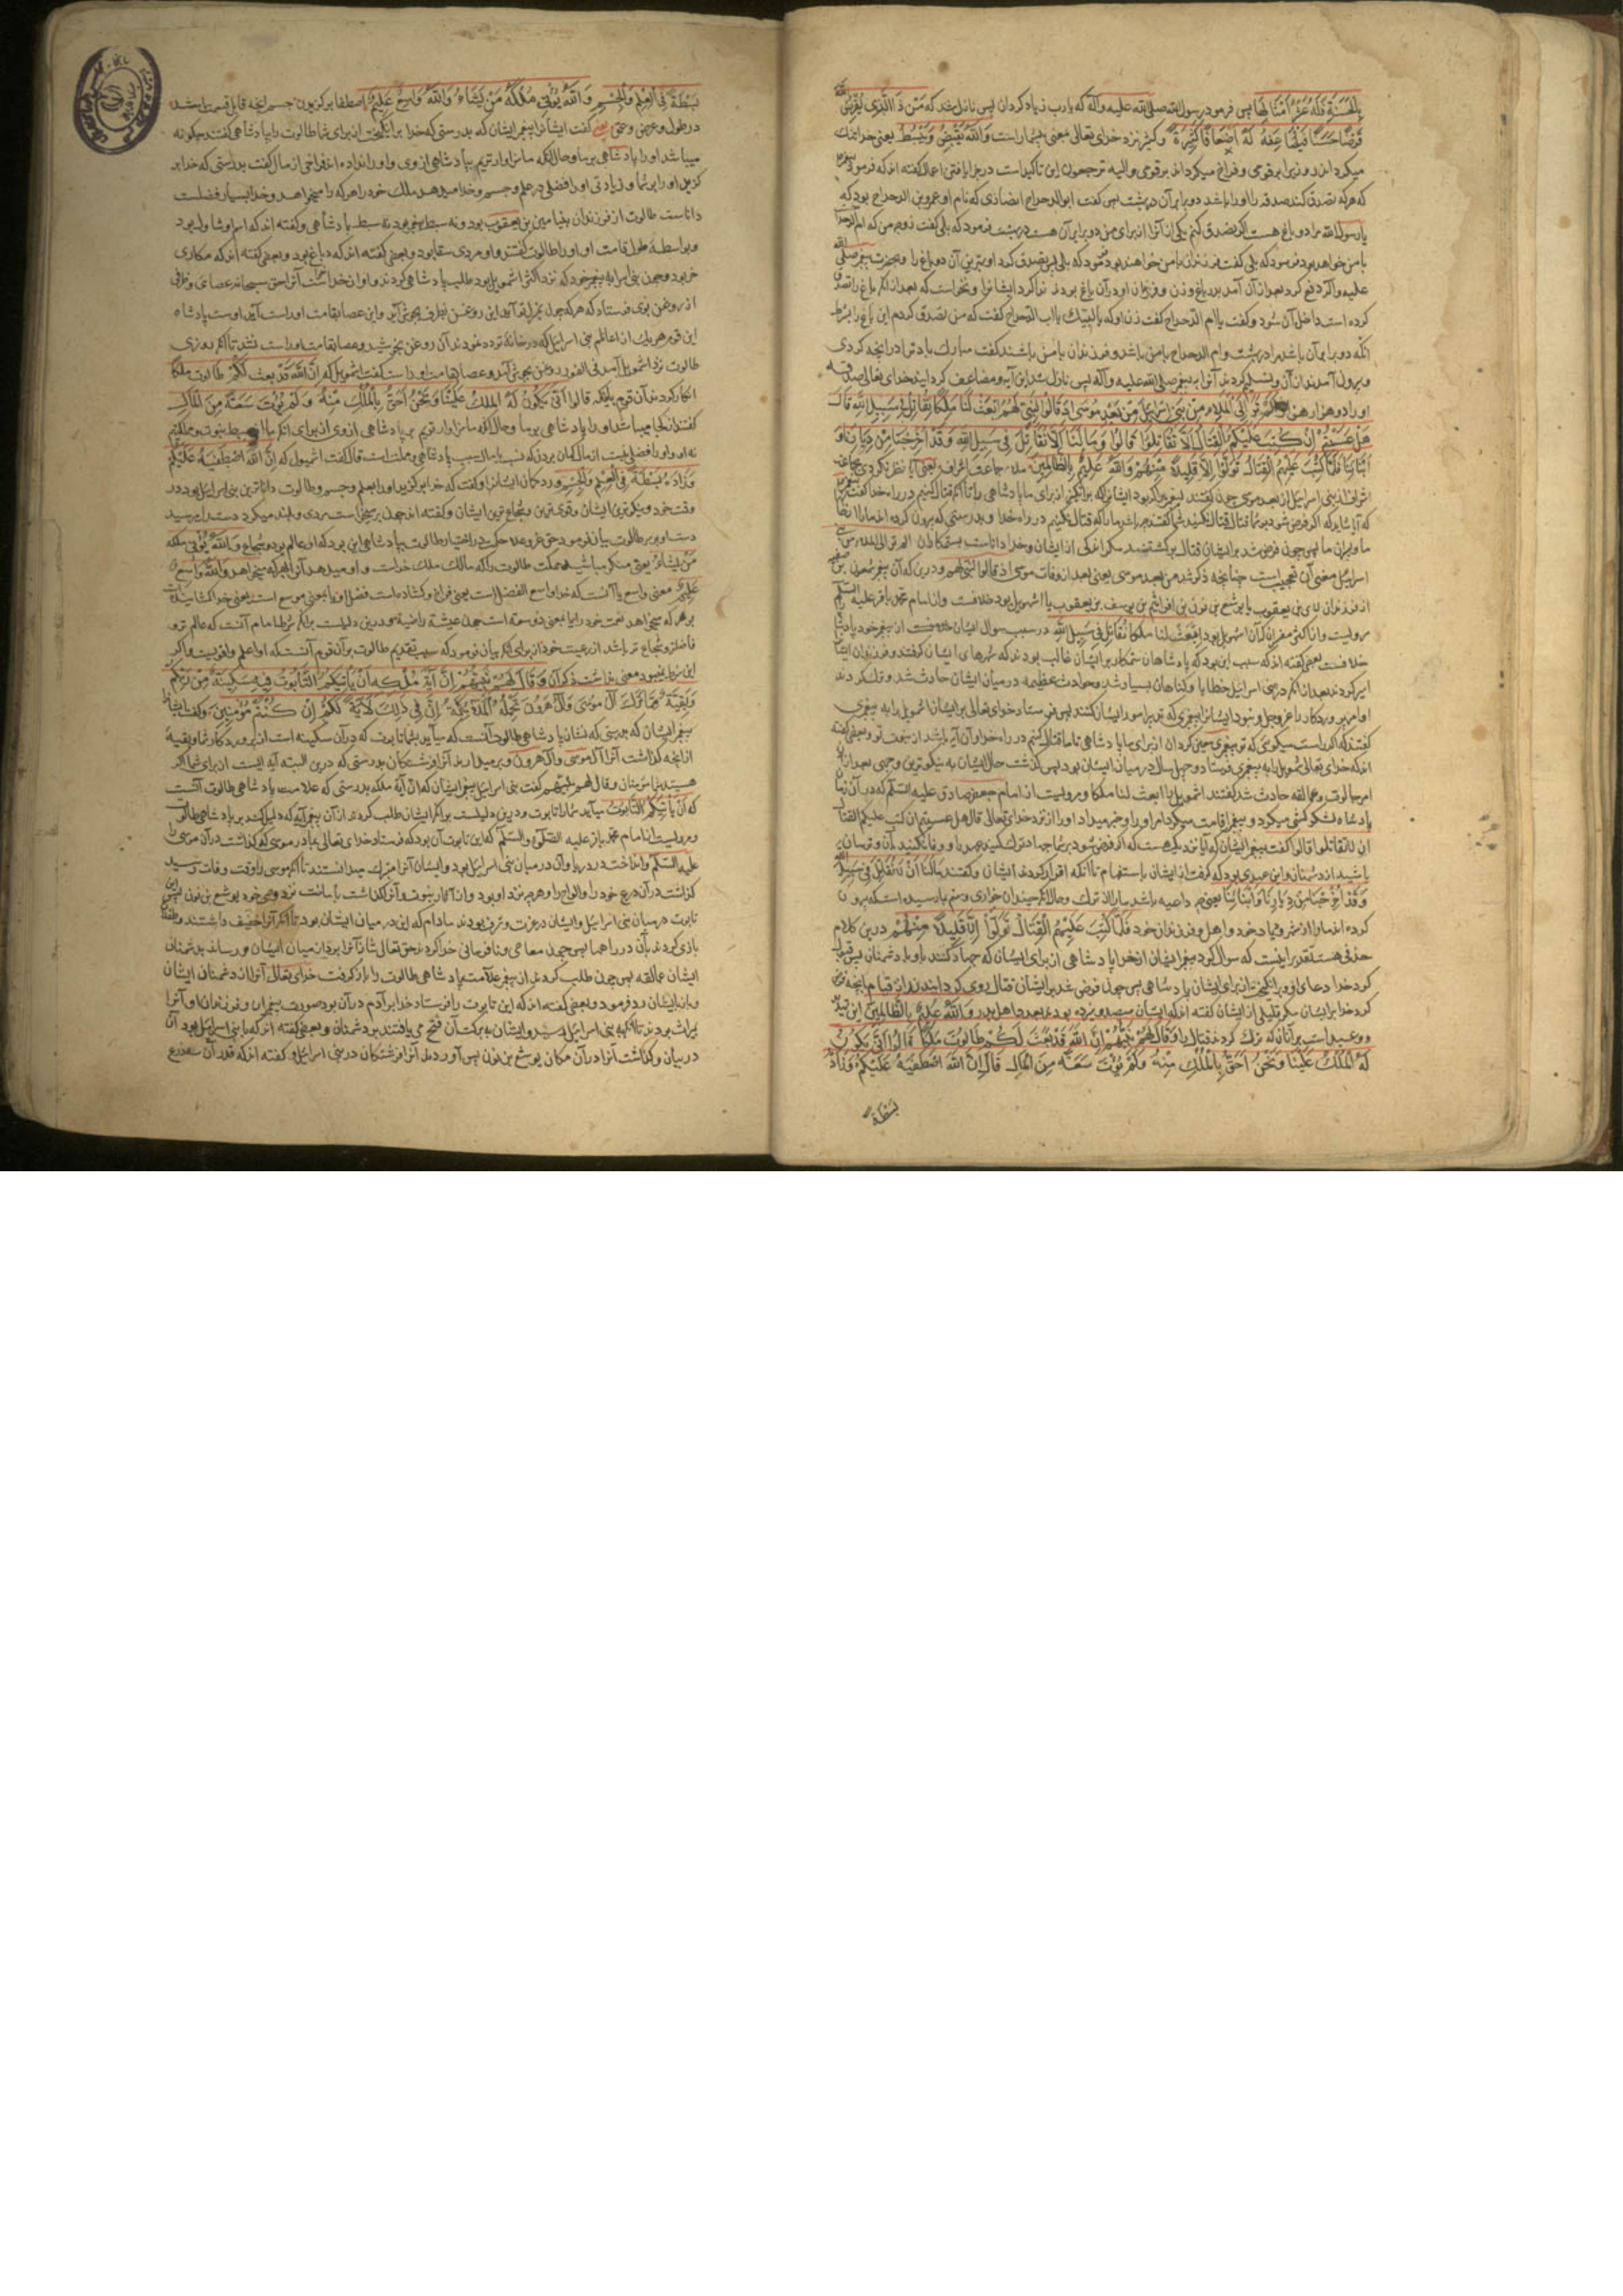 بالحسنة فله عشر امثالها پس فرمود رسول الله صلی الله علیه وآله که یا رب زیاد کردان پس نازل شد که من ذا الذی یقرض الله
قرضا حسنا فیضاعفه له اضعافا کثیرة و کثیر نزد خدای تعالی بمعنی بیشمار است والله یقبض ویبسط یعنی خدا تنک
میکرداند روزی را بر قومی و فراخ میکرداند بر قومی والیه ترجعون این تاکید است در جزا یافتن اعمال کفته اند که فرمود پیغمبر
که هر که تصدق کند صدقه را او را باشد دو برابر آن در بهشت پس کفت ابو الدحداح انصاری که نام او عمرو بن الدحداح بود که
یا رسول الله مرا دو باغ هست اکر تصدق کنم یکی از آنرا از برای من دو برابر آن هست در بهشت فرمود که بلی کفت زوجه من که ام الدحداح
با من خواهد بود فرمود که بلی کفت فرزندان با من خواهند بود فرمود که بلی پس تصدق کرد او بهترین آن دو باغ را و بحضرت پیغمبر صلی الله
علیه وآله دفع کرد بعد از آن آمد بدر باغ و زن و فرزندان او در آن باغ بودند ندا کرد ایشانرا و نخواست که بعد از آنکه باغ را تصدق
کرده است داخل آن شود و کفت یا ام الدحداح کفت زن او که یا لبیک یا اب الدحداح کفت که من تصدق کردم این باغ را بشرط
آنکه دو برابر آن باشد مرا در بهشت و ام الدحداح با من باشد و فرزندان با من باشند کفت مبارک باد ترا در آنچه کردی
و بیرون آمدند از آن و تسلیم کردند آنرا به پیغمبر صلی الله علیه وآله پس نازل شد این آیه و مضاعف کردانید خدای تعالی صدقه
او را دو هزار هزار الم تر الی الملاء من بنی اسرائیل من بعد موسی اذ قالوا لنبی لهم ابعث لنا ملکا نقاتل فی سبیل الله قال
هل عسیتم ان کتب علیکم القتال الا تقاتلوا قالوا وما لنا الا نقاتل فی سبیل الله وقد اخرجنا من دیارنا و
ابنائنا فلما کتب علیهم القتال تولوا الا قلیلا منهم والله علیم بالظالمین ملاء جماعت اشراف یعنی آیا نظر نکردی بجماعت
اشراف از بنی اسرائیل از بعد موسی چون کفتند پیغمبر را که بود ایشانرا که برانکیز از برای ما پادشاهی را تا آنکه قتال کنیم در راه خدا کفت پیغمبر
که آیا شاید که اکر فرض شود بر شما قتال قتال نکنید شما کفتند چه باشد ما را که قتال نکنیم در راه خدا و بدرستی که بیرون کرده اند ما را از خانها
ما و پسران ما پس چون فرض شد بر ایشان قتال برکشتند مکر اندکی از ایشان و خدا داناست بستمکاران الم تر الی الملاء من بنی
اسرائیل معنی آن تعجیب است چنانچه ذکر شد من بعد موسی یعنی بعد از وفات موسی اذ قالوا لنبی لهم و درین که آن پیغمبر شمعون بن صفیه
از فرزندان لاوی بن یعقوب یا یوشع بن نون بن افراثیم بن یوسف بن یعقوب یا اشمویل بود خلافست و از امام محمد باقر علیه السلم
مرویست و از اکثر مفسران که آن اشمویل بود ابعث لنا ملکا نقاتل فی سبیل الله در سبب سوال ایشان خلافست از پیغمبر خود پادشاه
خلافست بعضی کفته اند که سبب این بود که پادشاهان ستمکار بر ایشان غالب بودند که شهرهای ایشان کرفتند و فرزندان ایشان
اسیر کردند بعد از آنکه در بنی اسرائیل خطایا و کناهان بسیار شد و حوادث عظیمه در میان ایشان حادث شد و ترک کردند
اوامر پروردکار را عز وجل و نبود ایشانرا پیغمبری که تدبیر امور ایشان کنند پس فرستاد خدای تعالی بر ایشان اشمویل را به پیغمبری
کفتند که اکر راست میکوئی که تو پیغمبری مبعوث کردان از برای ما پادشاهی تا ما قتال کنیم در راه خدا و آن آیه باشد از نبوت تو و بعضی کفته
اند که خدای تعالی شمویل را به پیغمبری فرستاد و چهل سال در میان ایشان بود پس کذشت حال ایشان به نیکوترین وجهی بعد از آن
امر جالوت و عمالقه حادث شد کفتند اشمویل را ابعث لنا ملکا و مرویست از امام جعفر صادق علیه السلم که در آن زمان
پادشاه لشکر کشی میکرد و پیغمبر اقامت میکرد امر او را و خبر میداد او را از نزد خدای تعالی قال هل عسیتم ان کتب علیکم القتال
ان لا تقاتلوا قالوا کفت پیغمبر ایشان که آیا نزدیک است که اکر فرض شود بر شما جهاد ترک کنید جهد را و وفا نکنید بآن و ترسان
باشید از دشمنان و این خبری بود که کرفت از ایشان باستفهام تا آنکه اقرار کردند ایشان و کفتند مالنا ان لا نقاتل فی سبیل الله
وقد اخرجنا من دیارنا وابنائنا یعنی چه داعیه باشد ما را از ترک و حال آنکه چندان خواری و ستم بما رسیده است که بیرون
کرده اند ما را از شهر و دیار خود و اهل و فرزندان خود فلما کتب علیهم القتال تولوا الا قلیلا منهم درین کلام
حذفی هست تقدیر اینست که سوال کرد پیغمبر ایشان از خدا پادشاهی از برای ایشان که جهاد کنند باو با دشمنان پس قبول
کرد خدا دعای او و برانکیخت از برای ایشان پادشاهی پس چون فرض شد بر ایشان قتال روی کردانیدند از قیام بآنچه فرض
کرد خدا بر ایشان مکر قلیلی از ایشان کفته اند که ایشان سیصد و سیزده بودند بعدد اهل بدر والله علیم بالظالمین این تهدید
و وعید است بر آنان که ترک کردند قتال را وقال لهم نبیهم ان الله قد بعث لکم طالوت ملکا قالوا انی یکون
له الملک علینا ونحن احق بالملک منه ولم یؤت سعة من المال قال ان الله اصطفیه علیکم وزاده
بسطة
بسطة فی العلم والجسم والله یؤتی ملکه من یشاء والله واسع علیم اصطفا برکزیدن جسم آنچه قابل قسمت باشد
در طول و عرض و عمق یعنی کفت ایشانرا پیغمبر ایشان که بدرستی که خدا برانکیخت از برای شما طالوت را پادشاهی کفتند چکونه
میباشد او را پادشاهی بر ما و حال آنکه ما سزاوارتریم بپادشاهی از وی و او را نداده اند فراخی از مال کفت بدرستی که خدا بر
کزید او را بر شما و زیادتی او را فضلی در علم و جسم و خدا میدهد ملک خود را هر که را میخواهد و خدا بسیار فضلست
داناست طالوت از فرزندان بنیامین بن یعقوب بود و نه سبط پیغمبر بود نه سبط پادشاهی و کفته اند که اسم او شاول بود
و بواسطه طول قامت او او را طالوت کفتند و او مردی سقا بود و بعضی کفته اند که دباغ بود و بعضی کفته اند که مکاری
خر بود و چون بنی اسرائیل به پیغمبر خود که نزد اکثر اشمویل بود طلب پادشاهی کردند و او از خدا خواست آنرا حق سبحانه عصای و ظرفی
از روغن بوی فرستاد که هر که چون بمنزل تو آید این روغن بظرف بجوش آید و این عصا بقامت او راست آید اوست پادشاه
این قوم هر یک از اعاظم بنی اسرائیل که در خانهٔ تردد نمودند آن روغن بجوش نیامد و عصا بقامت او راست نشد تا آنکه روزی
طالوت نزد اشمویل آمد فی الفور روغن بجوش آمد و عصا بقامت او راست کفت اشمویل که ان الله قد بعث لکم طالوت ملکا
انکار کردند آن قوم بلکه قالوا انی یکون له الملک علینا ونحن احق بالملک منه ولم یؤت سعة من المال
کفتند از کجا میباشد او را پادشاهی بر ما و حال آنکه ما سزاوارتریم بر پادشاهی از وی از برای آنکه ما از سبط نبوت و مملکتیم
نه او و او را فضلی نیست از مال کمان بردن که نسب با مال سبب پادشاهی و مملکت است قال کفت اشمویل که ان الله اصطفیه علیکم
وزاده بسطة فی العلم والجسم و رد کمان ایشانرا و کفت که خدا برکزید او را بعلم و جسم و طالوت داناترین بنی اسرائیل بود در
وقت خود و نیکوترین ایشان و قوی ترین و شجاع ترین ایشان و کفته اند چون بر میخواست مردی و بلند میکرد دست را میرسید
دست او بسر طالوت بیان فرمود حق عز وعلا حکمت در اختیار طالوت بپادشاهی این بود که او عالم بود و شجاع والله یؤتی ملکه
من یشاء یعنی منکر مباشید مملکت طالوت را که مالک ملک خداست و او میدهد آنرا بهر که میخواهد والله واسع
علیم معنی واسع یا آنست که خدا واسع الفضل است یعنی فراخ و کشاده است فضل او یا بمعنی موسع است یعنی خدا کشاینده است
بر هر که میخواهد نعمت خود را یا بمعنی ذو سعة است چون عیشة راضیة و درین دلیلست بر آنکه شرط امام آنست که عالم تر و
فاضلتر و شجاع تر باشد از رعیت خود از برای آنکه بیان فرمود که سبب تقدیم طالوت بر آن قوم آنست که او اعلم و اقویست و اکر
این شرط نمیبود معنی نداشت ذکر آن وقال لهم نبیهم ان آیة ملکه ان یأتیکم التابوت فیه سکینة من ربکم
وبقیة مما ترک آل موسی وآل هرون تحمله الملائکة ان فی ذلک لآیة لکم ان کنتم مؤمنین و کفت ایشانرا
پیغمبر ایشان که بدرستی که نشان پادشاهی طالوت آنست که میآید بشما تابوت که در آن سکینه است از پروردکار شما و بقیهٔ
از آنچه کذاشت آنرا آل موسی و آل هرون و بر میدارند آنرا فرشتکان بدرستی که درین البته آیه ایست از برای شما اکر
هستید شما مؤمنان وقال لهم نبیهم کفت بنی اسرائیل پیغمبر ایشان که ان آیة ملکه بدرستی که علامت پادشاهی طالوت آنست
که ان یأتیکم التابوت میآید شما را تابوت و درین دلیلست بر آنکه ایشان طلب کردند از آن پیغمبر آیه که دلیل کند بر پادشاهی طالوت
و مرویست از امام محمد باقر علیه الصلوة والسلم که این تابوت آن بود که فرستاد خدای تعالی بمادر موسی که کذاشت در آن موسی را
علیه السلم و انداخت در دریا و آن در میان بنی اسرائیل بود و ایشان آنرا متبرک میدانستند تا آنکه موسی را وقت وفات رسید
کذاشت در آن درع خود را و الواح را و هر چه نزد او بود و از آثار نبوت و آنرا کذاشت بامانت نزد وصی خود یوشع بن نون پس این
تابوت در میان بنی اسرائیل و ایشان در عزت و شرف بودند مادام که این در میان ایشان بود تا آنکه آنرا خفیف داشتند و طفلان
بازی کردند بآن در راهها پس چون معاصی و نافرمانی خدا کردند حق تعالی شانه آنرا برد از میان ایشان و رساند بدشمنان
ایشان عمالقه پس چون طلب کردند از پیغمبر علامت پادشاهی طالوت را باز کرفت خدای تعالی آنرا از دشمنان ایشان
و بایشان رد فرمود و بعضی کفته اند که این تابوت را فرستاد خدا بر آدم در آن بود صورت پیغمبران و فرزندان او آنرا
بمیراث بردند تا آنکه به بنی اسرائیل رسید و ایشان به برکت آن فتح می یافتند بر دشمنان و بعضی کفته اند که با بنی اسرائیل بود آن
در بیابان و کذاشت آنرا در آن مکان یوشع بن نون پس آوردند آنرا فرشتکان در بنی اسرائیل و کفته اند که قدر آن سه ذرع